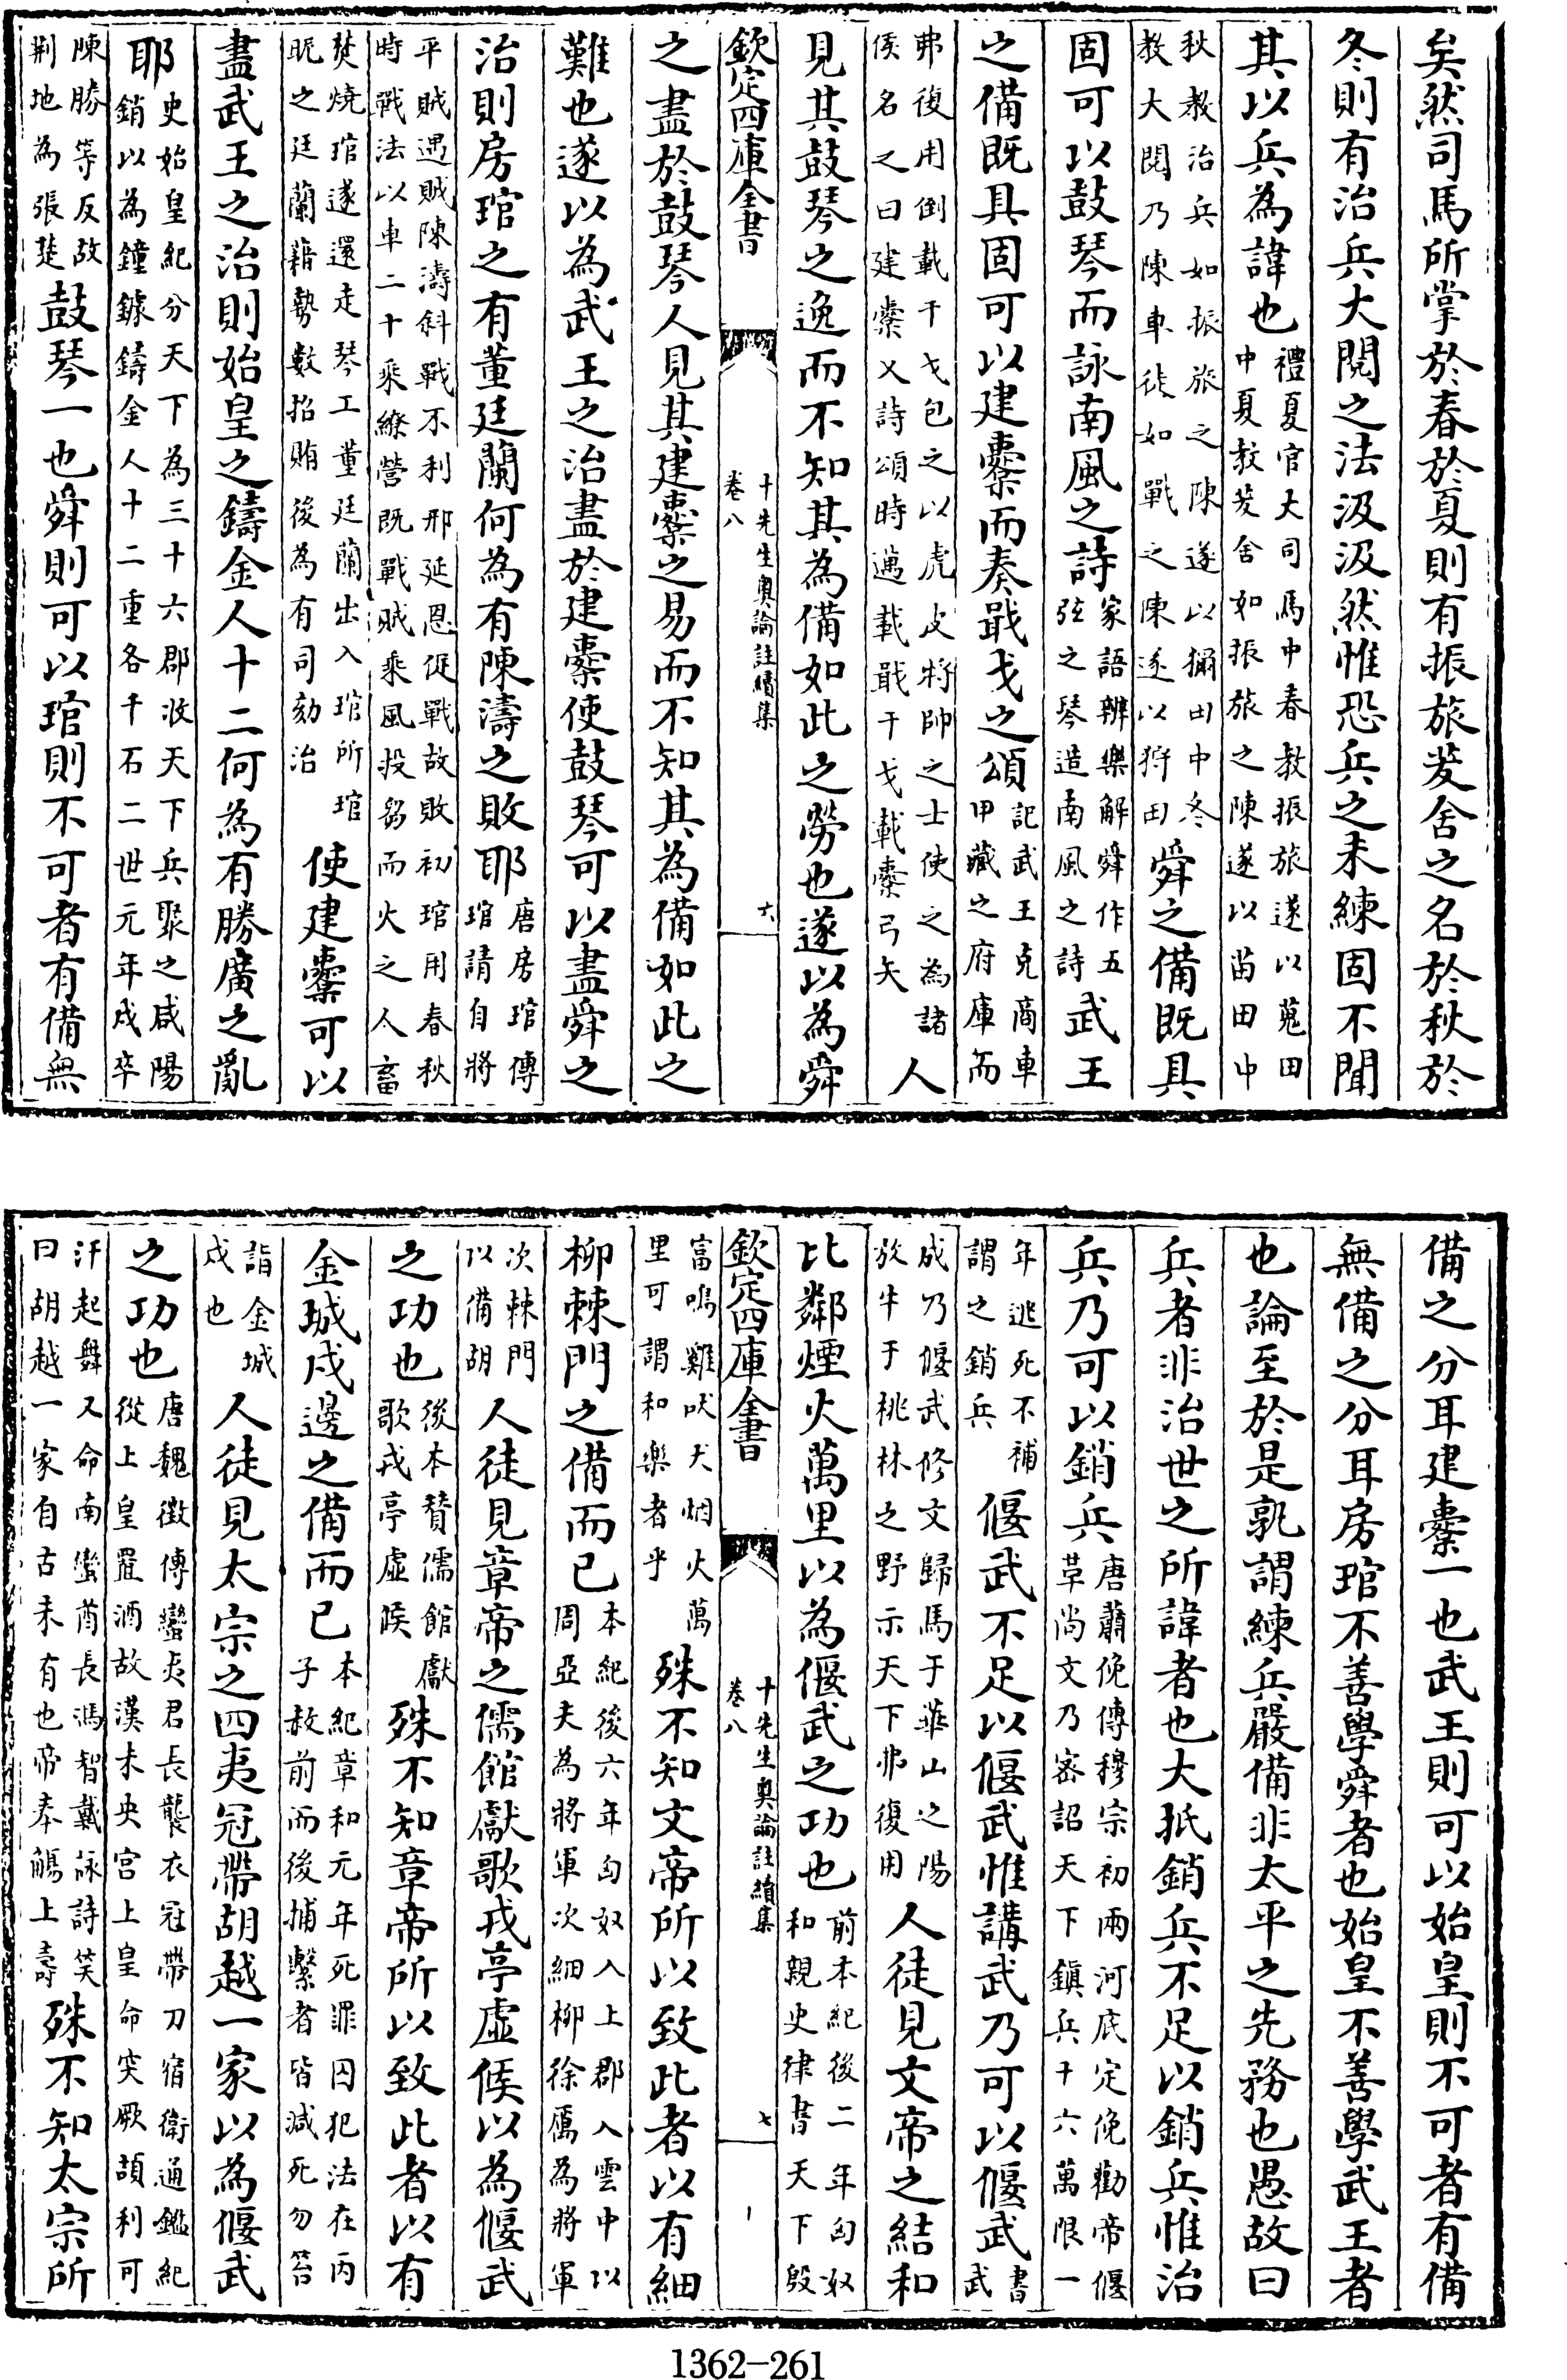 矣然司馬所掌於春於夏則有振旅茇舍之名於秋於
冬則有治兵大閱之法汲汲然惟恐兵之未練固不聞
其以兵為諱也禮夏官大司馬中春教振旅遂以蒐田中夏教茇舍如振旅之陳遂以苗田中
秋教治兵如振旅之陳遂以獮田中冬教大閱乃陳車徒如戰之陳遂以狩田舜之備既具
固可以鼓琴而詠南風之詩家語辨樂解舜作五弦之琴造南風之詩武王
之備既具固可以建櫜而奏戢戈之頌記武王克商車甲藏之府庫而
弗復用倒載干戈包之以虎皮將帥之士使之為諸侯名之曰建櫜又詩頌時邁載戢干戈載櫜弓矢人
見其鼓琴之逸而不知其為備如此之勞也遂以為舜
欽定四庫全書 十先生奧論註續集 卷八 六
之盡於鼓琴人見其建櫜之易而不知其為備如此之
難也遂以為武王之治盡於建櫜使鼓琴可以盡舜之
治則房琯之有董廷蘭何為有陳濤之敗耶唐房琯傳琯請自將
平賊遇賊陳濤斜戰不利邢延恩促戰故敗初琯用春秋時戰法以車二十乘繚營既戰賊乘風投芻而火之人畜
焚燒琯遂還走琴工董廷蘭出入琯所琯昵之廷蘭藉勢數招賄後為有司劾治使建櫜可以
盡武王之治則始皇之鑄金人十二何為有勝廣之亂
耶史始皇紀分天下為三十六郡收天下兵聚之咸陽銷以為鐘鐻鑄金人十二重各千石二世元年戍卒
陳勝等反故荆地為張楚鼓琴一也舜則可以琯則不可者有備無
備之分耳建櫜一也武王則可以始皇則不可者有備
無備之分耳房琯不善學舜者也始皇不善學武王者
也論至於是孰謂練兵嚴備非太平之先務也愚故曰
兵者非治世之所諱者也大抵銷兵不足以銷兵惟治
兵乃可以銷兵唐蕭俛傳穆宗初兩河底定俛勸帝偃革尚文乃密詔天下鎮兵十六萬限一
年逃死不補謂之銷兵偃武不足以偃武惟講武乃可以偃武書武
成乃偃武修文歸馬于華山之陽放牛于桃林之野示天下弗復用人徒見文帝之結和
比鄰煙火萬里以為偃武之功也前本紀後二年匈奴和親史律書天下殷
富鳴雞吠犬烟火萬里可謂和樂者乎殊不知文帝所以致此者以有細
欽定四庫全書 十先生奧論註續集 卷八 七
柳棘門之備而已本紀後六年匈奴入上郡入雲中以周亞夫為將軍次細柳徐厲為將軍
次棘門以備胡人徒見章帝之儒館獻歌戎亭虛候以為偃武
之功也後本賛儒館獻歌戎亭虛候殊不知章帝所以致此者以有
金城戍邊之備而已本紀章和元年死罪囚犯法在丙子赦前而後捕繫者皆減死勿笞
詣金城戍也人徒見太宗之四夷冠帶胡越一家以為偃武
之功也唐魏徵傳蠻夷君長襲衣冠帶刀宿衛通鑑紀從上皇置酒故漢未央宮上皇命突厥頡利可
汗起舞又命南蠻酋長馮智戴詠詩笑曰胡越一家自古未有也帝奉觴上壽殊不知太宗所
1362-261